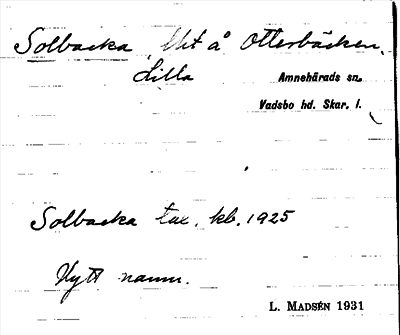 Solbacka, lht å Otterbäcken,
Lilla
Amnehärads sn.
Vadsbo hd. Skar. l.
Solbacka tax. kb. 1925
Nytt namn.
L. MADSÉN 1931